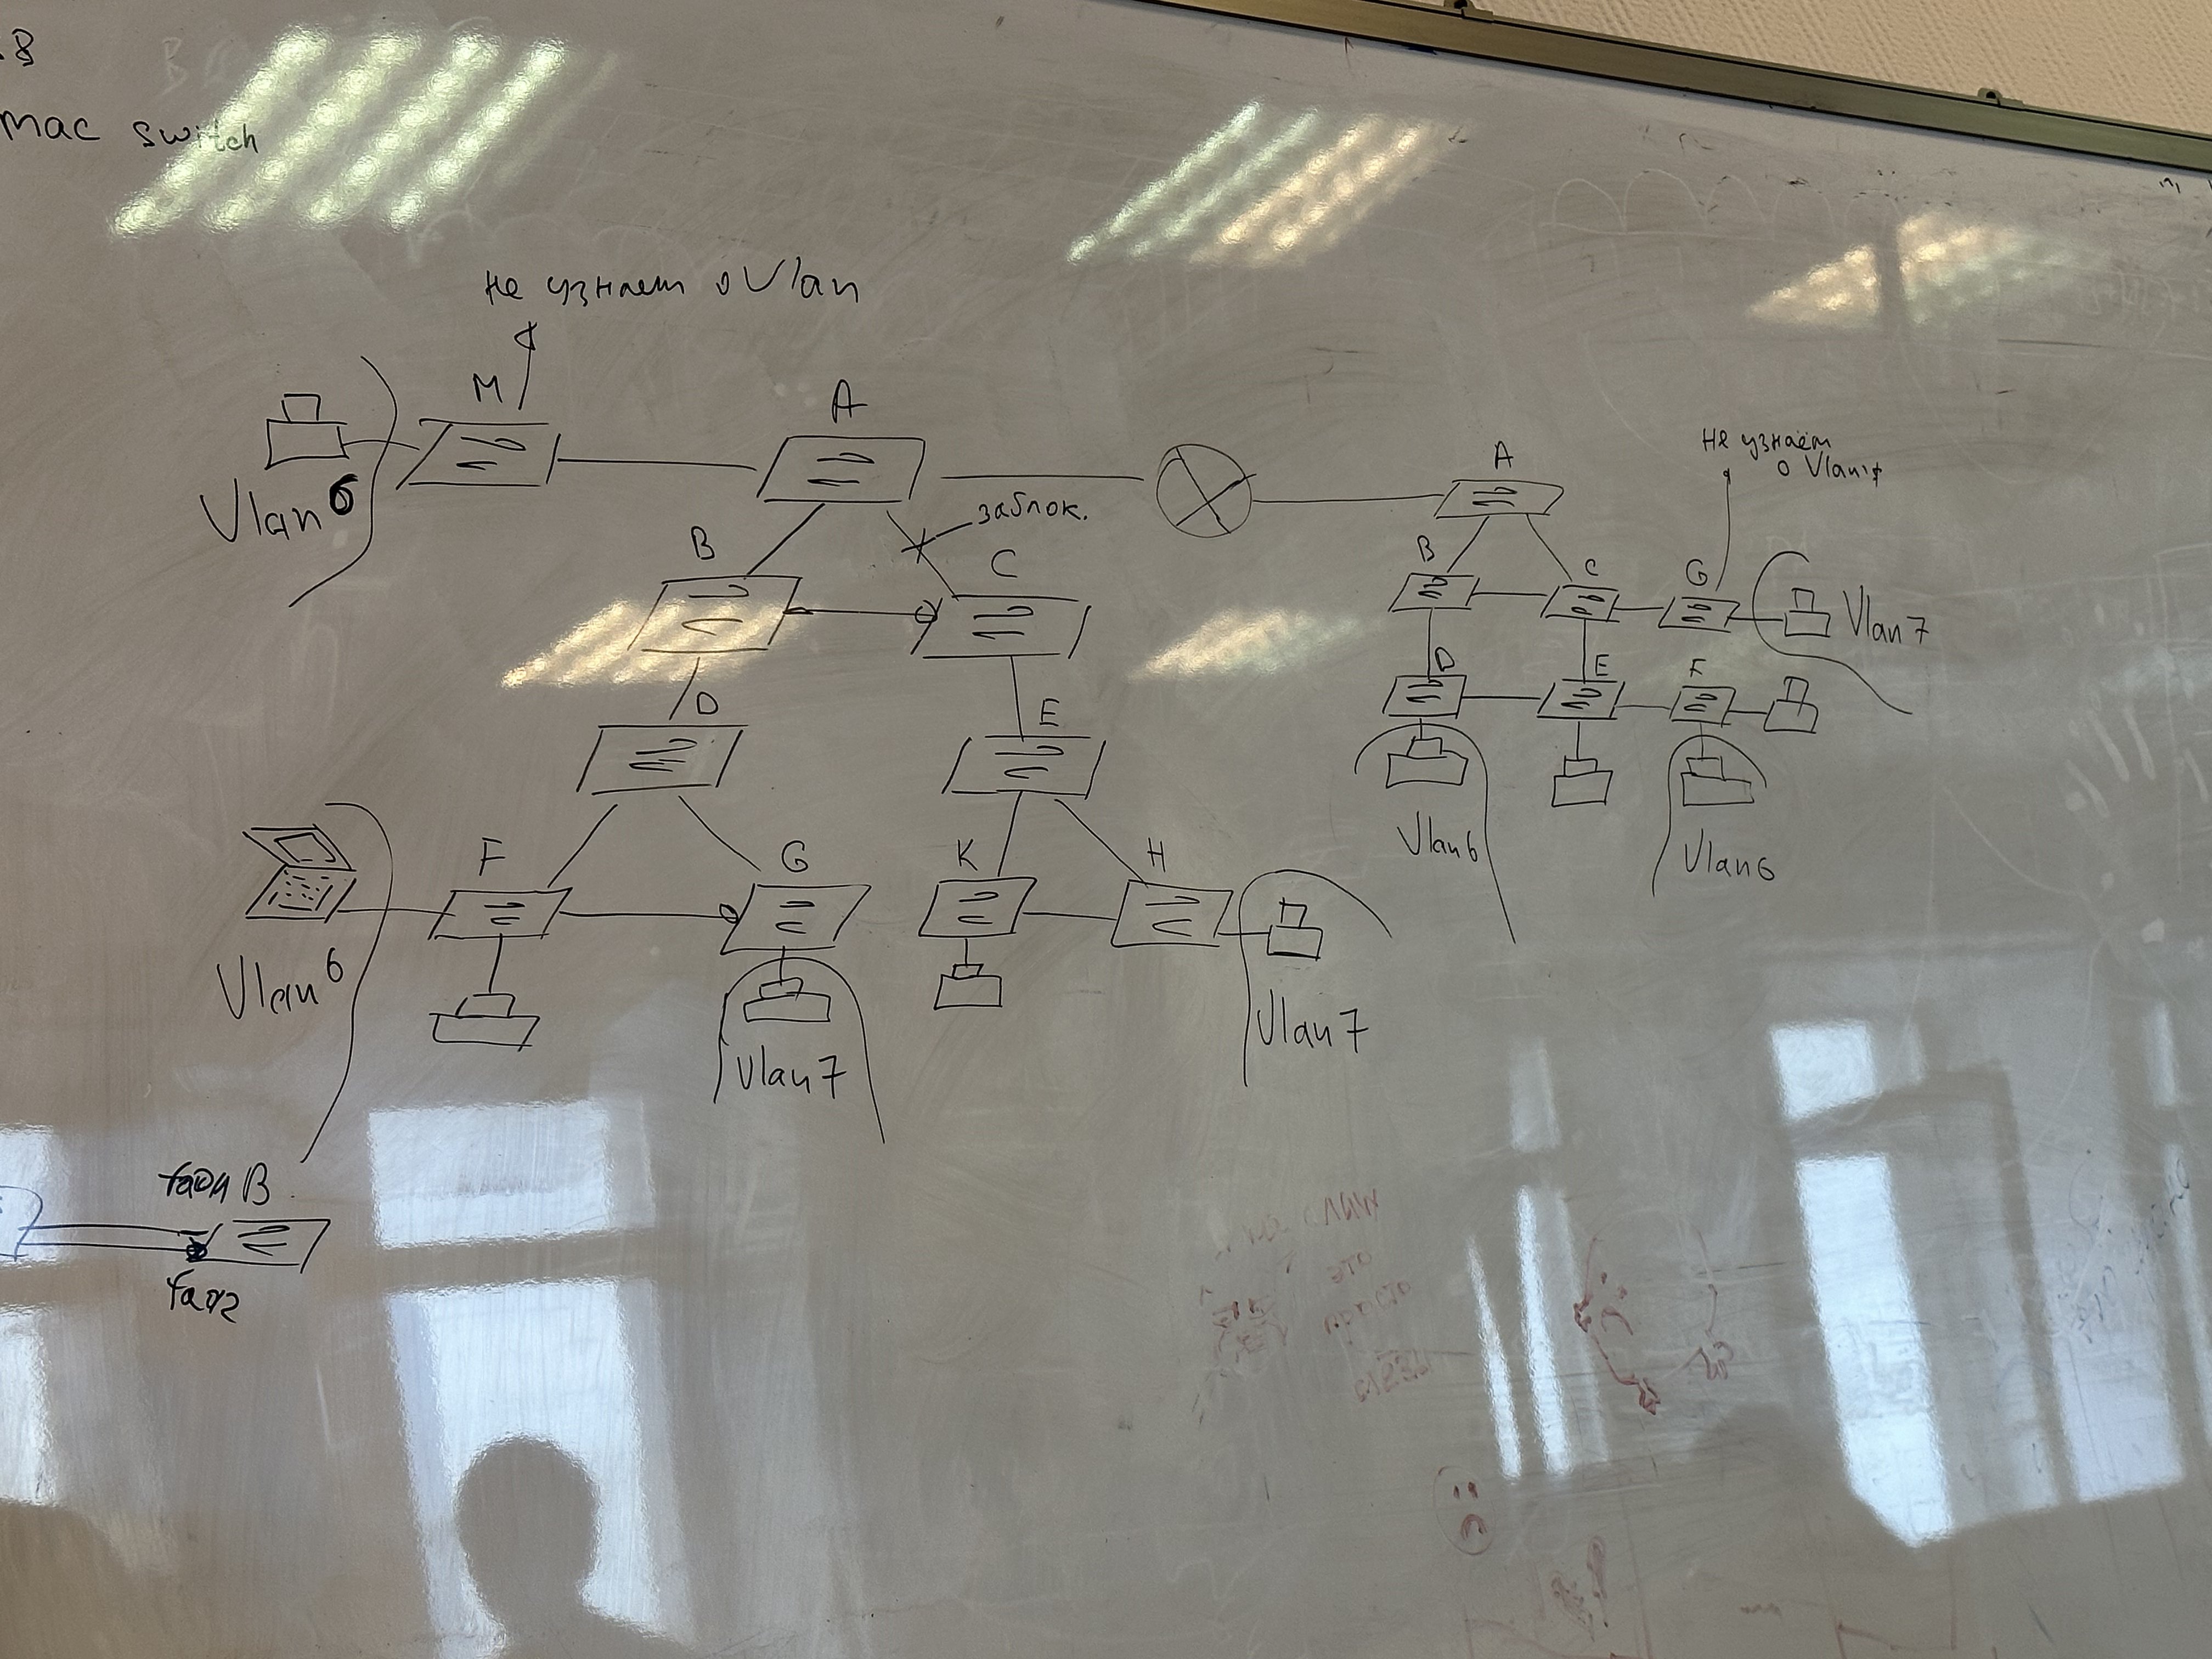 mac switch
Не узнаем о Vlan
M
A
Vlan 6
заблок.
B
C
D
E
F
G
K
H
Vlan 6
Vlan 7
Vlan 7
B
A
Не узнаём
о Vlan
B
C
G
Vlan 7
D
E
F
Vlan 6
Vlan 6
это
просто